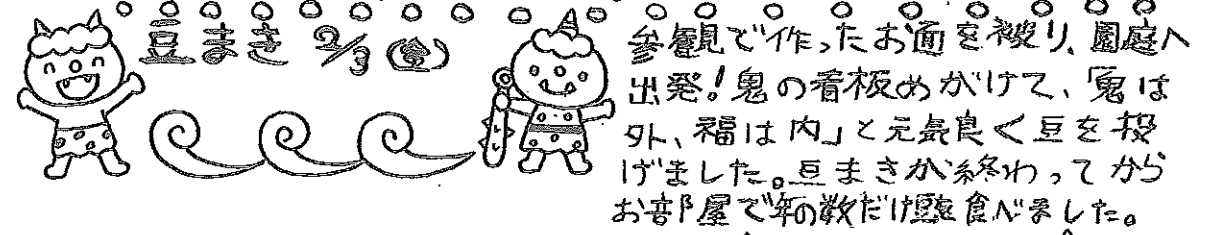 豆まき 2/3(金)
参観で作ったお面を被り、園庭へ
出発!鬼の看板めがけて、「鬼は
外、福は内」と元気良く豆を投
げました。豆まきが終わってから
お部屋で年の数だけ豆を食べました。